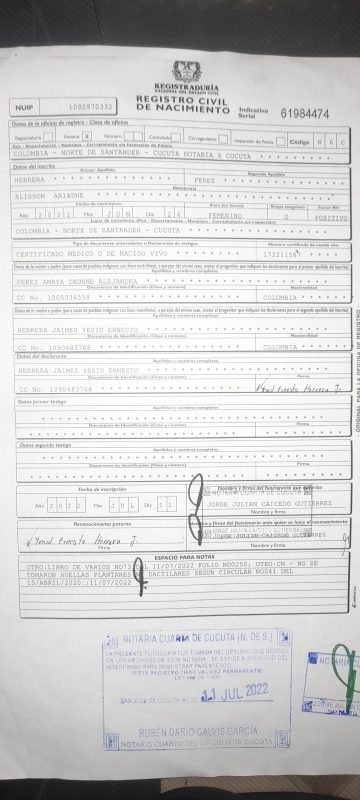 REGISTRADURÍA
NACIONAL DEL ESTADO CIVIL
NUIP 1092970332
REGISTRO CIVIL
DE NACIMIENTO
Indicativo
Serial 61984474
Datos de la oficina de registro - Clase de oficina
Registraduría Notaría X Número Consulado Corregimiento Inspección de Policía Código R 6 C
País - Departamento - Municipio - Corregimiento e/o Inspección de Policía
COLOMBIA - NORTE DE SANTANDER - CUCUTA NOTARIA 4 CUCUTA
Datos del inscrito
Primer Apellido Segundo Apellido
HERRERA PEREZ
Nombre(s)
ALISSON ARIADNE
Fecha de nacimiento Sexo (en letras) Grupo sanguíneo Factor RH
Año 2022 Mes JUN Día 24 FEMENINO O POSITIVO
Lugar de nacimiento (País - Departamento - Municipio - Corregimiento e/o Inspección)
COLOMBIA - NORTE DE SANTANDER - CUCUTA
Tipo de documento antecedente o Declaración de testigos Número certificado de nacido vivo
CERTIFICADO MEDICO O DE NACIDO VIVO
Apellidos y nombres completos
PEREZ AMAYA DADNNE ALEJANDRA
Documento de identificación (Clase y número) Nacionalidad
CC No. 1005036558 COLOMBIA
Apellidos y nombres completos
HERRERA JAIMES YESID ERNESTO
Documento de identificación (Clase y número) Nacionalidad
CC No. 1090483768 COLOMBIA
Datos del declarante
Apellidos y nombres completos
HERRERA JAIMES YESID ERNESTO
Documento de identificación (Clase y número) Firma
CC No. 1090483768 Yesid Ernesto Herrera J.
Datos primer testigo
Apellidos y nombres completos
Documento de identificación (Clase y número) Firma
Datos segundo testigo
Apellidos y nombres completos
Documento de identificación (Clase y número) Firma
Fecha de inscripción Nombre y firma del funcionario que autoriza
NOTARIA CUARTA DE CUCUTA
Año 2022 Mes JUL Día 11 JORGE JULIAN CAICEDO GUTIERREZ
Nombre y firma
Reconocimiento paterno Nombre y firma del funcionario ante quien se hace el reconocimiento
Yesid Ernesto Herrera J. JORGE JULIAN CAICEDO GUTIERREZ
Nombre y firma
ESPACIO PARA NOTAS
OTRO:LIBRO DE VARIOS NO73 DEL 11/07/2022 FOLIO NO0250; OTRO:CN - NO SE
TOMARON HUELLAS PLANTARES Y DACTILARES SEGUN CIRCULAR NO041 DEL
15/ABRIL/2020.;11/07/2022
- ORIGINAL PARA LA OFICINA DE REGISTRO -
NOTARÍA CUARTA DE CUCUTA (N. DE S.)
LA PRESENTE FOTOCOPIA FUE TOMADA DEL ORIGINAL QUE REPOSA
EN LOS ARCHIVOS DE ESTA NOTARIA SE EXPIDE A SOLICITUD DEL
INTERESADO PARA DEMOSTRAR PARENTESCO
(ESTE REGISTRO TIENE VALIDEZ PERMANENTE)
SAN JOSE DE CUCUTA A LOS 11 JUL 2022
RUBÉN DARIO GALVIS GARCÍA
NOTARIO CUARTO DEL CÍRCULO DE CUCUTA